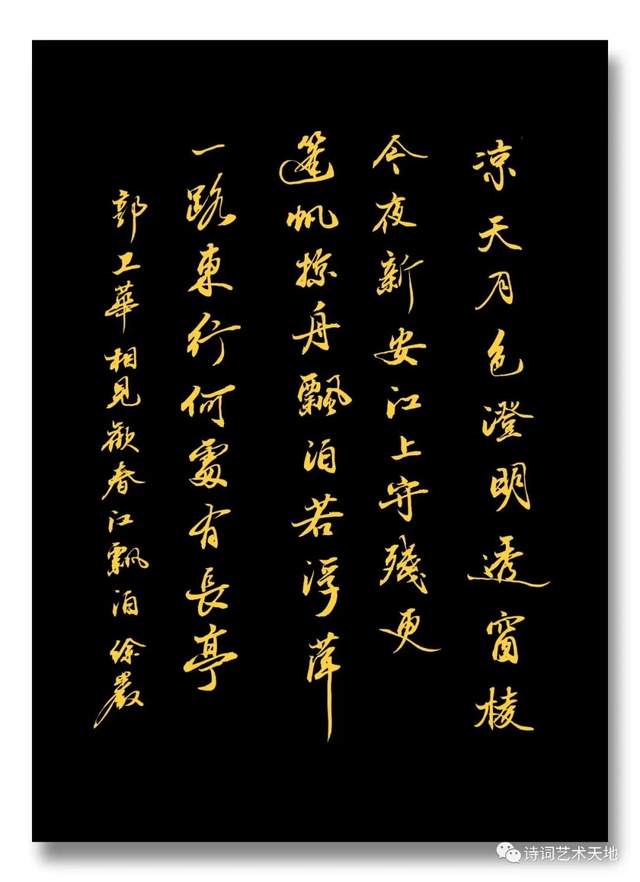 凉天月色澄明透窗棱
今夜新安江上守残更
篷帆掠舟飘泊若浮萍
一路東行何處有長亭
郭工華相見歡春江飄泊徐嚴
诗词艺术天地